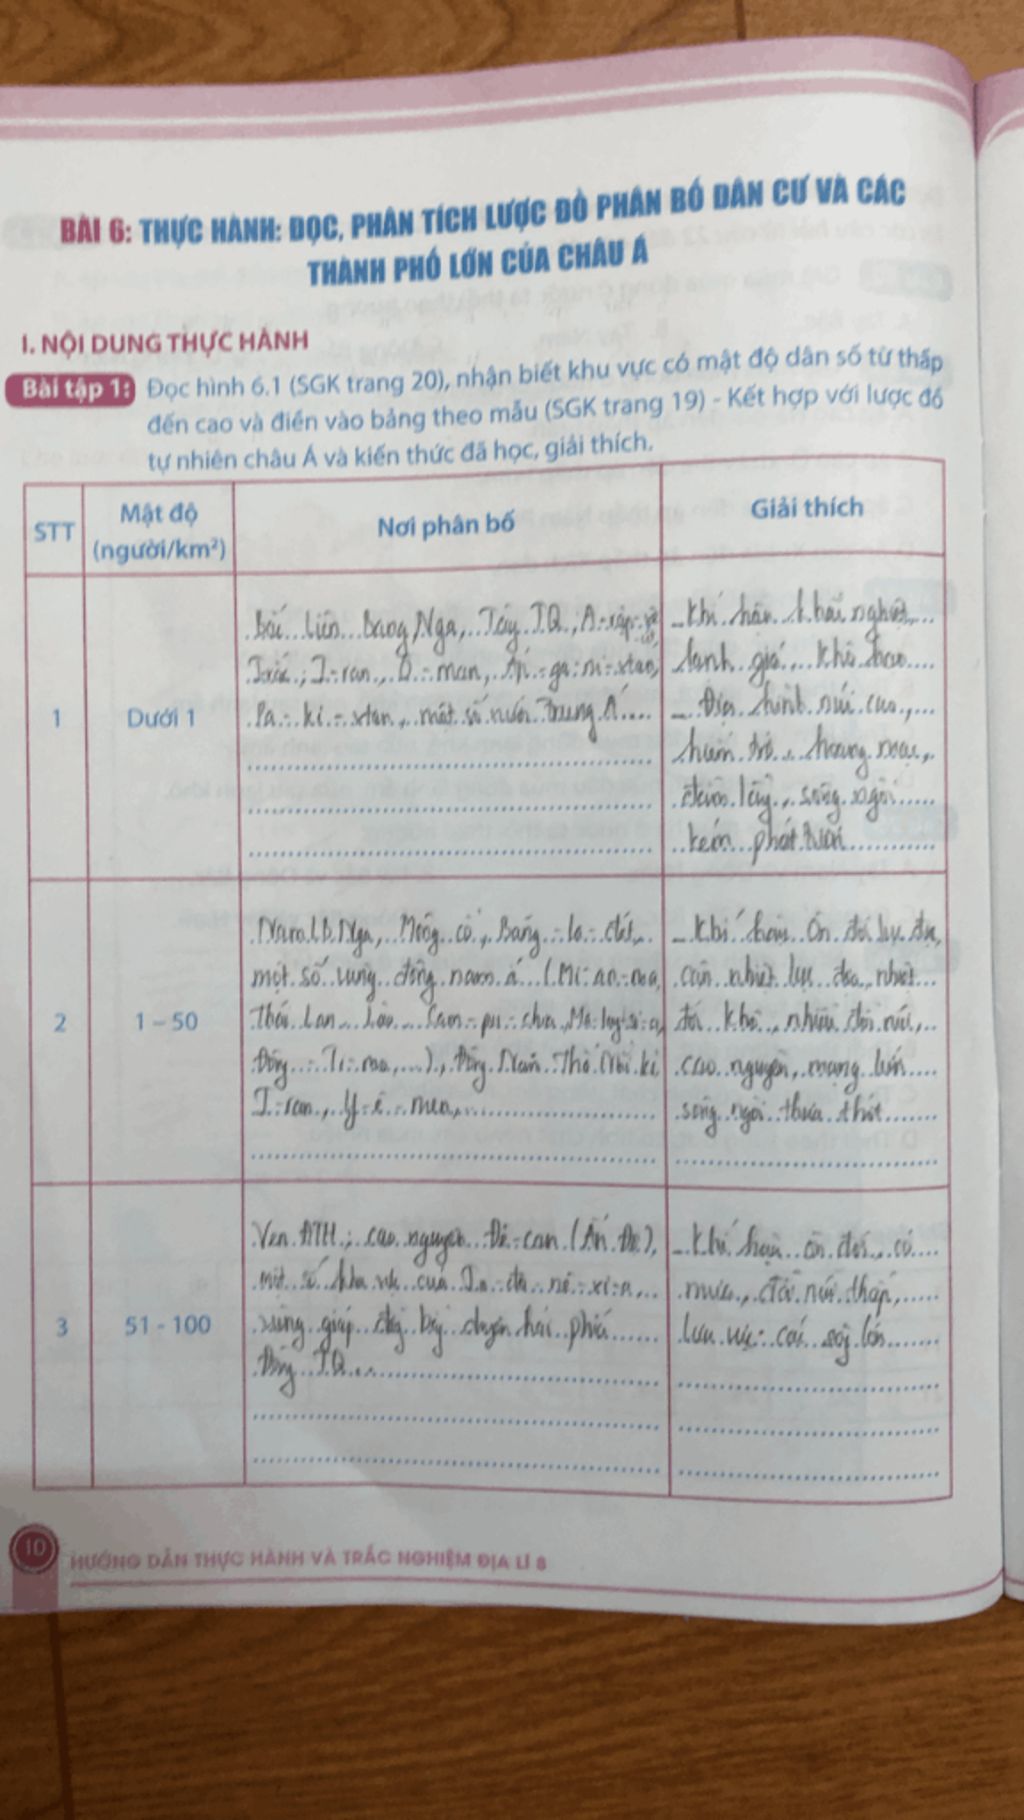 BÀI 6: THỰC HÀNH: ĐỌC, PHÂN TÍCH LƯỢC ĐỒ PHÂN BỐ DÂN CƯ VÀ CÁC
THÀNH PHỐ LỚN CỦA CHÂU Á
I. NỘI DUNG THỰC HÀNH
Bài tập 1: Đọc hình 6.1 (SGK trang 20), nhận biết khu vực có mật độ dân số từ thấp
đến cao và điền vào bảng theo mẫu (SGK trang 19) - Kết hợp với lược đồ
tự nhiên châu Á và kiến thức đã học, giải thích.
STT
Mật độ
(người/km²)
Nơi phân bố
Giải thích
1
Dưới 1
Bắc Liên Bang Nga, Tây T.Q, A-rập-xê
I-ran, Ô-man, Áp-ga-ni-xtan,
Pa-ki-xtan, một số nước Trung Á
- Khí hậu khắc nghiệt,
lạnh giá, khô hạn
- Địa hình núi cao,
hiểm trở, hoang mạc,
đầm lầy, sông ngòi
kém phát triển
2
1 – 50
Nam LB Nga, Mông cổ, Băng-la-đét,
một số vùng đông nam á (Mi-an-ma,
Thái Lan, Lào, Cam-pu-chia, Ma-lay-si-a,
Đông-Ti-mo,...), Đông Nam Thổ Nhĩ kì
I-ran, Y-ê-men,
- Khí hậu ôn đới lục địa,
cận nhiệt lục địa, nhiệt
đới khô, nhiều đồi núi,
cao nguyên, mạng lưới
sông ngòi thưa thớt
3
51 - 100
Ven ĐTH, cao nguyên Đê-can (Ấn Độ),
một số khu vực của In-đô-nê-xi-a,
vùng giáp đồng bằng duyên hải phía
Đông T.Q
- Khí hậu ôn đới, có
mưa, đồi núi thấp,
lưu vực các sông lớn
10
HƯỚNG DẪN THỰC HÀNH VÀ TRẮC NGHIỆM ĐỊA LÍ 8